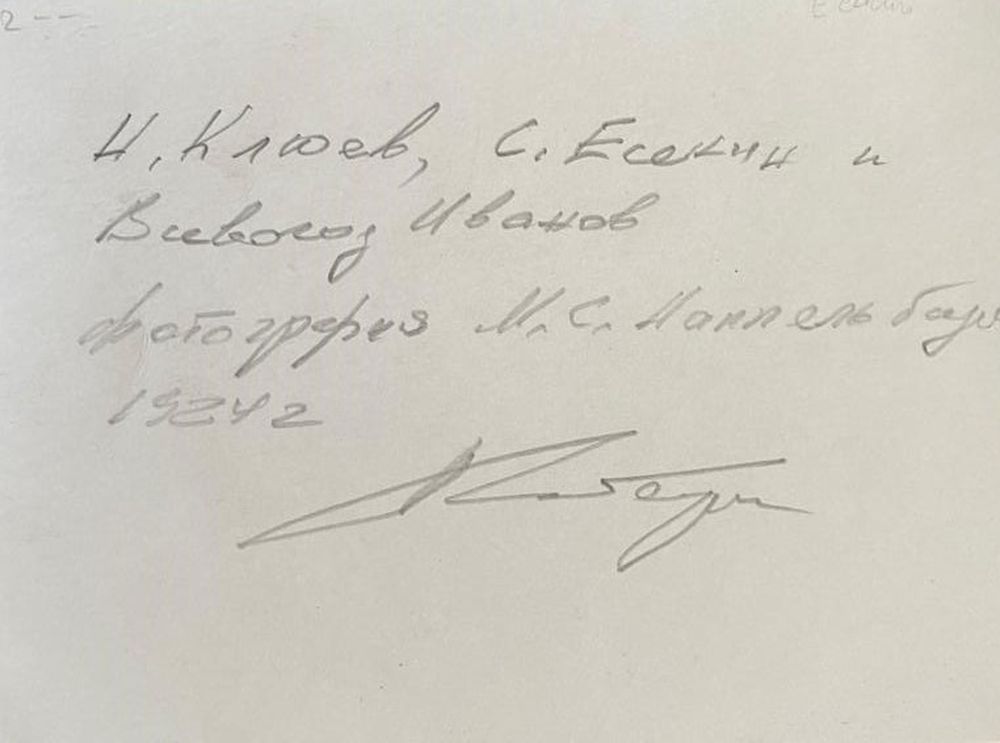 2 --
Есенин
Н. Клюев, С. Есенин и
Всеволод Иванов
фотография М.С. Наппельбаум
1924 г